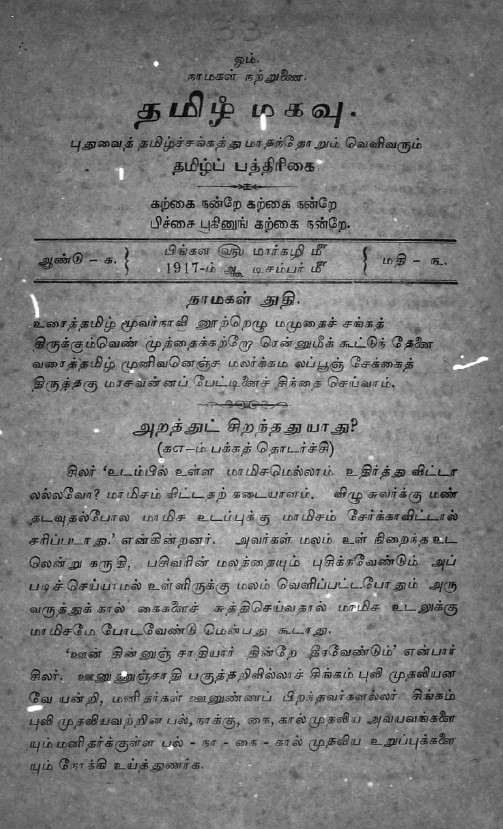 ஓம்.
நாமகள் நற்றுணை.
தமிழ் மகவு.
புதுவைத் தமிழ்ச்சங்கத்து மாதந்தோறும் வெளிவரும்
தமிழ்ப் பத்திரிகை
கற்கை நன்றே கற்கை நன்றே
பிச்சை புகினுங் கற்கை நன்றே.
ஆண்டு – க. } பிங்கள ௵ மார்கழி ௴ { மதி – ௩.
1917-ம் ௵ டிசம்பர் ௴
நாமகள் துதி.
உரைத்தமிழ் மூவர்நாவி னூற்றெழு மமுதைச் சங்கத்
திருக்கும்வெண் முத்தைக்கற்றோ ரென்னுமீக் கூட்டுந் தேனை
வரைத்தமிழ் முனிவனெஞ்ச மலர்க்கம லப்பூஞ் சேக்கைத்
திருத்தகு மாசவன்னப் பேட்டினைச் சிந்தை செய்வாம்.
அறத்துட் சிறந்ததுயாது?
(கஎ–ம் பக்கத் தொடர்ச்சி)
சிலர் 'உடம்பில் உள்ள மாமிசமெல்லாம் உதிர்த்து விட்டா
லல்லவோ? மாமிசம் விட்டதற் கடையாளம். விழு சுவர்க்கு மண்
தடவுதல்போல மாமிச உடம்புக்கு மாமிசம் சேர்க்காவிட்டால்
சரிப்படாது.' என்கின்றனர். அவர்கள் மலம் உள் நிறைந்த உட
லென்று கருதி, பசிவரின் மலத்தையும் புசிக்கவேண்டும் அப்
படிச்செய்யாமல் உள்ளிருக்கு மலம் வெளிப்பட்டபோதும் அரு
வருத்துக் கால் கைகளைச் சுத்திசெய்வதால் மாமிச உடலுக்கு
மாமிசமே போடவேண்டு மென்பது கூடாது.
'ஊன் தின்னுஞ் சாதியார் தின்றே தீரவேண்டும்' என்பார்
சிலர். ஊனுணுஞ்சாதி பகுத்தறிவில்லாச் சிங்கம் புலி முதலியன
வே யன்றி, மனிதர்கள் ஊனுண்ணப் பிறந்தவர்களல்லர் சிங்கம்
புலி முதலியவற்றின் பல், நாக்கு, கை, கால் முதலிய அவயவங்களை
யும் மனிதர்க்குள்ள பல் - நா - கை - கால் முதலிய உறுப்புக்களை
யும் நோக்கி உய்த்துணர்க.